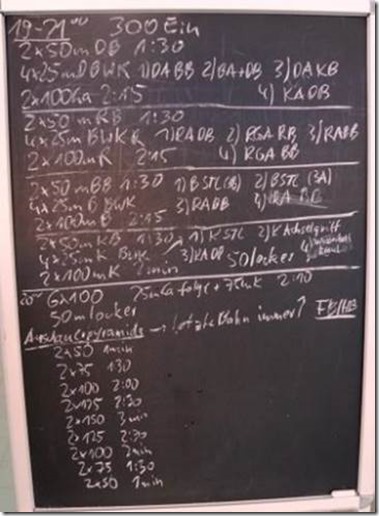 19-21⁰⁰ 300 Ein
2x50m DB 1:30
4x25m DBWK 1) DABB 2) BA+DB 3) DAKB
2x100ha 2:15 4) KADB
2x50m RB 1:30
4x25m BWKR 1) RADB 2) RGA RB 3) RABB
2x100mR 2:15 4) RGA BB
2x50 mBB 1:30 1) BSTC 2) BSTC (3A)
4x25m B BWK 3) RABB 4)
2x100mB 2:15
2x50m KB 1:30 1) KSTC 2) K Achselgriff
4x25m K BWK 3) KADB 50 locker 4)
2x100mK 2min
6x100 75m Ca folge + 75m K 2:10
50m locker
Austauchpyramide → letzte Bahn immer ?
2x50 1min
2x75 1:30
2x100 2:00
2x125 2:30
2x150 3min
2x125 2:30
2x100 2min
2x75 1:30
2x50 1min